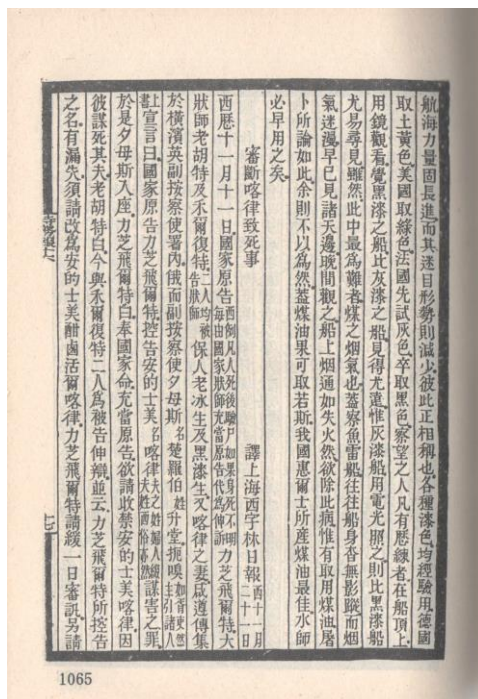 航海力量固長進而其迷目形勢則減少彼此正相稱也各種漆色均經驗用德國
取土黃色美國取綠色法國先試灰色卒取黑色察望之人凡有歷練者在船頂上
用鏡觀看覺黑漆之船比灰漆之船見得尤遠惟灰漆船用電光照之則比黑漆船
尤易尋見雖然此中最爲難者煤之烟氣也蓋察魚雷船往往船身杳無影蹤而烟
氣迷漫早已見諸天邊晚間觀之船上烟通如失火然欲除此病惟有取用煤油屠
卜所論如此余則不以爲然蓋煤油果可取若斯我國惠爾士所產煤油最佳水師
必早用之矣
審斷喀律致死事
譯上海西字林日報 西十一月二十一日
西歷十一月十一日國家原告 西例凡人死後驗尸如果身死不明每由國家狀師充當原告代爲伸訴 力芝飛爾特大
狀師老胡特及禾爾復特 二人均被告狀師 保人老冰生及黑漆生又喀律之妻咸遵傳集
於橫濱英副按察使署內俄而副按察使夕毋斯 名 楚羅伯 姓 升堂扼嗅 如胥吏然主引諸人
上書 宣言曰國家原告力芝飛爾特控告安的士美 名 喀律 夫之姓婦人綴夫姓西俗亦然 謀害之罪
於是夕毋斯入座力芝飛爾特白奉國家命充當原告欲請收禁安的士美喀律因
彼謀死其夫老胡特白今與禾爾復特二人爲被告伸辯並云力芝飛爾特所控告
之名有漏失須請改爲安的士美酣鹵活爾喀律力芝飛爾特請緩一日審訊另請
1065